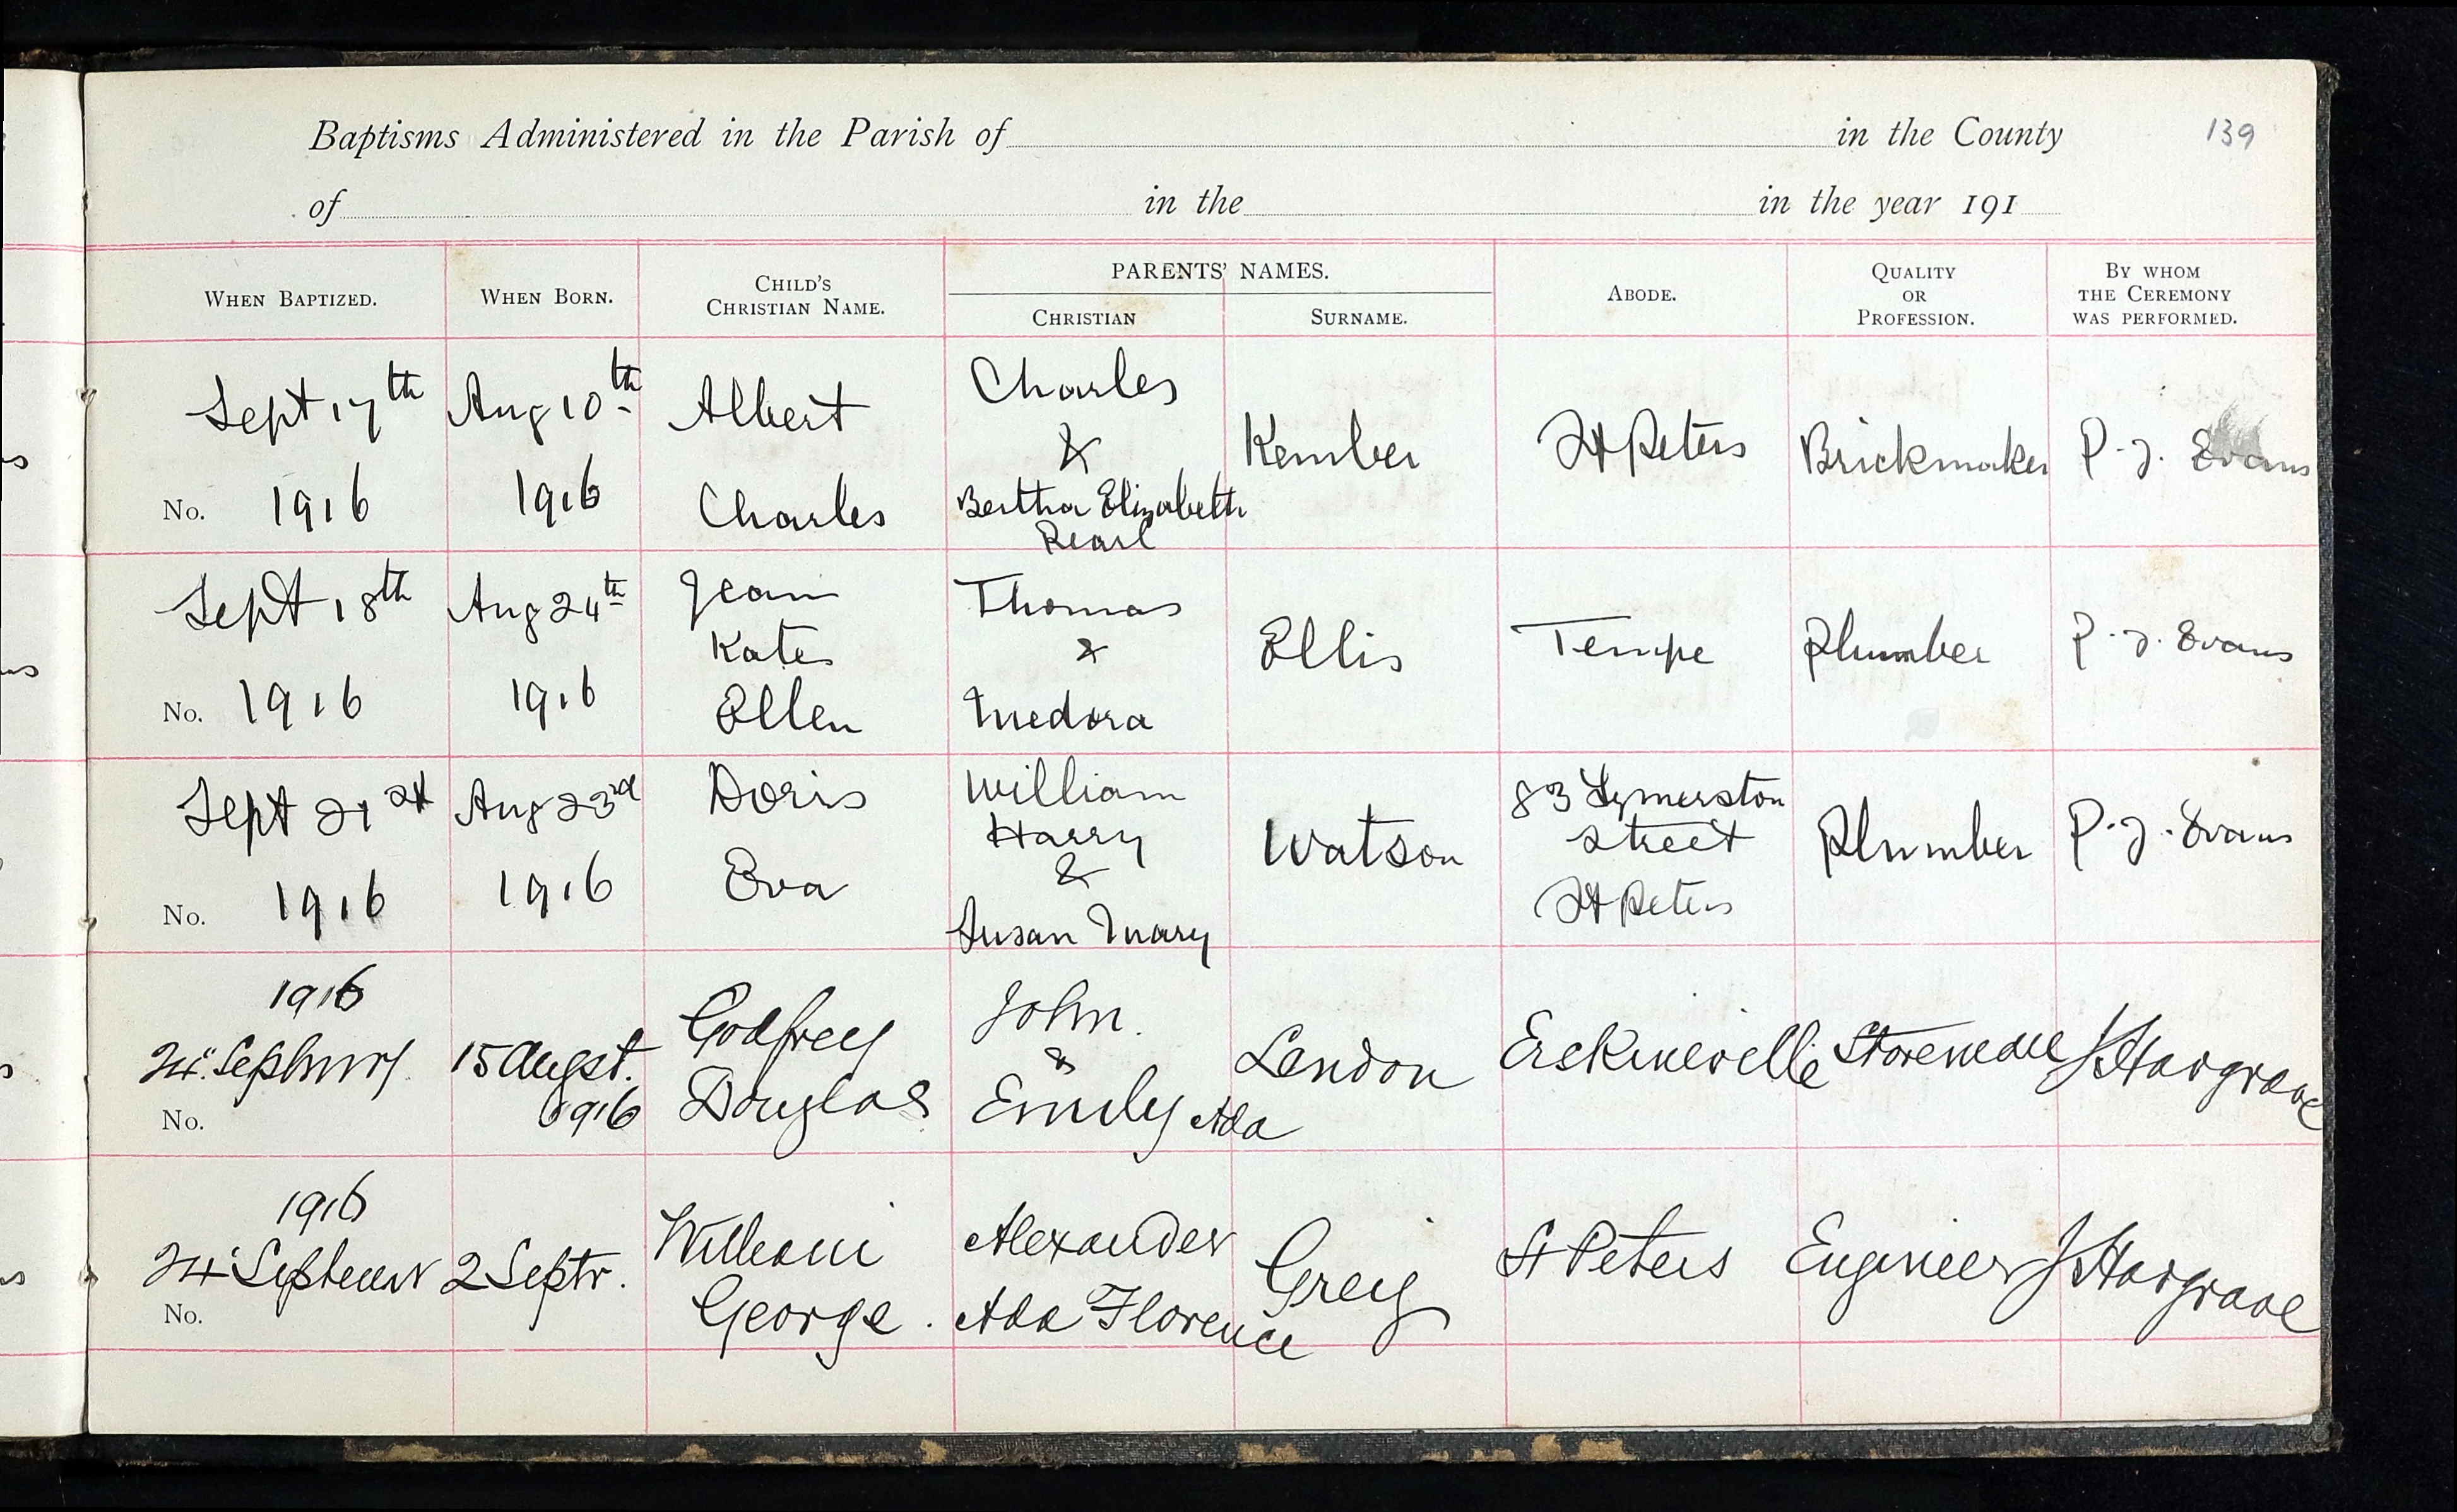 139
Baptisms Administered in the Parish of in the County
of in the in the year 191
WHEN BAPTIZED. WHEN BORN. CHILD'S CHRISTIAN NAME. PARENTS' NAMES. CHRISTIAN SURNAME. ABODE. QUALITY OR PROFESSION. BY WHOM THE CEREMONY WAS PERFORMED.
Sept 17th
No. 1916
Aug 10th
1916
Albert
Charles
Charles
&
Bertha Elizabeth
Pearl
Kember
St Peters
Brickmaker
P. J. Evans
Sept 18th
No. 1916
Aug 24th
1916
Jean
Kate
Ellen
Thomas
&
Medora
Ellis
Tempe
Plumber
P. J. Evans
Sept 21st
No. 1916
Aug 23rd
1916
Doris
Eva
William
Harry
&
Susan Mary
Watson
83 Lymerston
Street
St Peters
Plumber
P. J. Evans
1916
24
No.
15 Augst.
1916
Godfrey
Douglas
John.
&
Emily Ada
London
Erskineville
Storeman
J Hargrave
1916
24 September
No.
2 Septr.
William
George.
Alexander
Ada Florence
Greig
St Peters
Engineer
J Hargrave